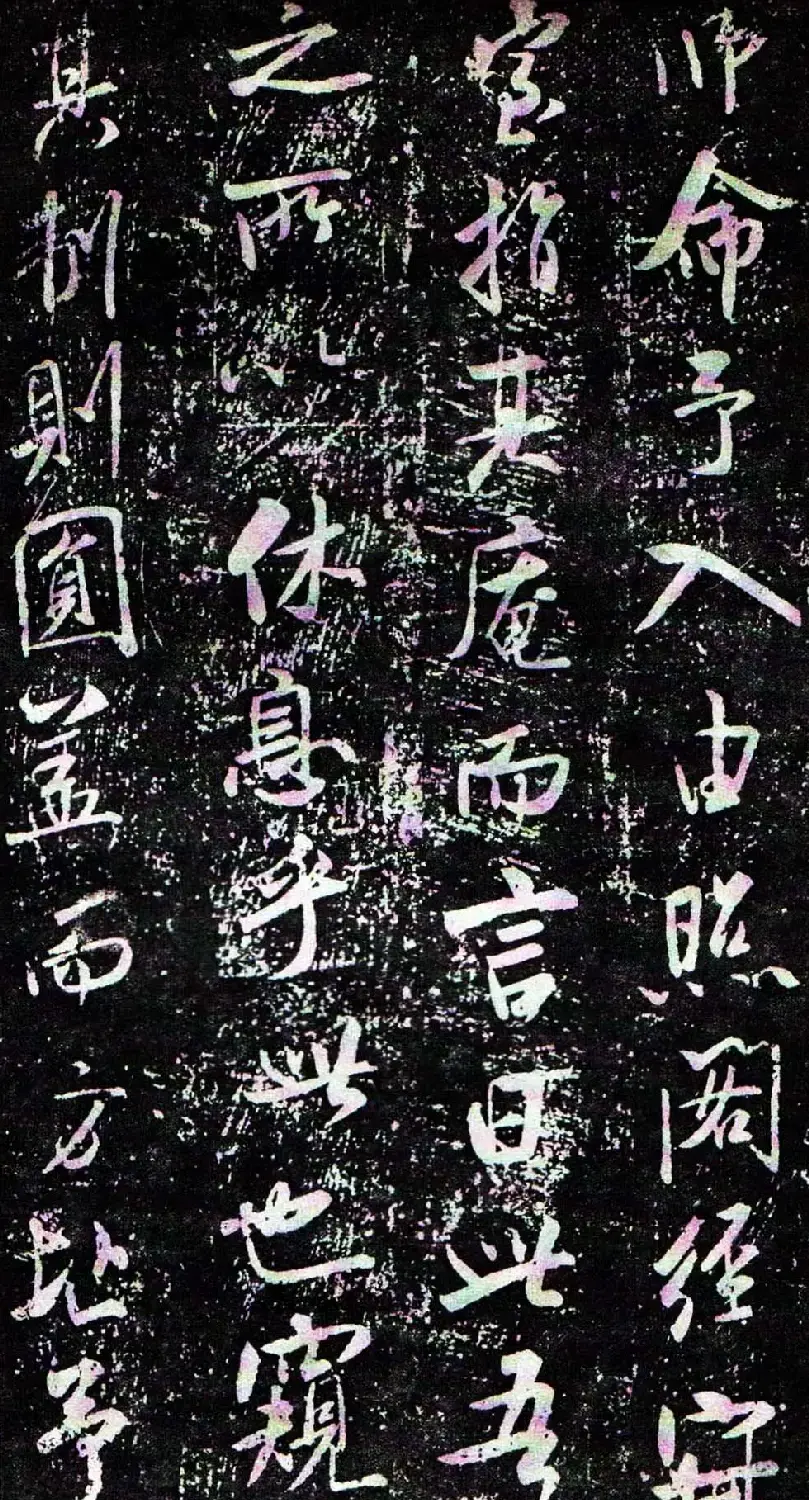 師命予入由照閣經
室指其庵而言曰此吾
之所以休息乎此也窺
其制則圓蓋而方址